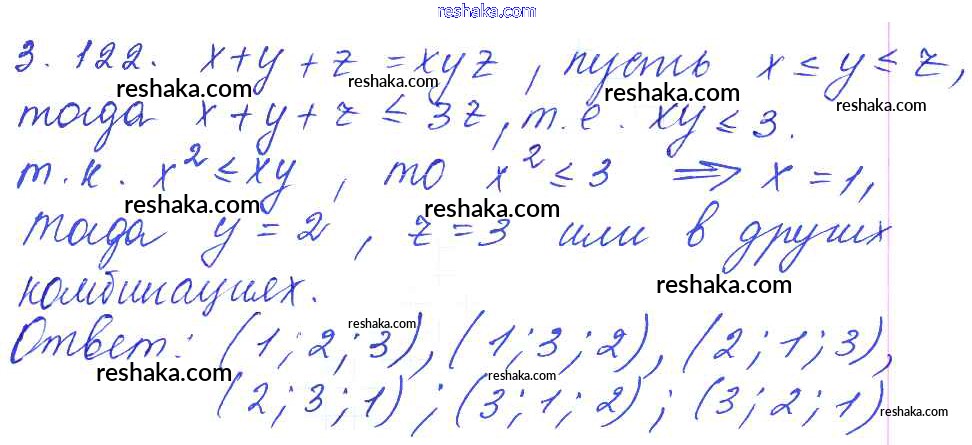 reshaka.com
3.122. x+y+z=xyz, пусть x≤y≤z,
reshaka.com reshaka.com reshaka.com reshaka.com
тогда x+y+z≤3z, т.е. xy≤3.
т.к. x²≤xy, то x²≤3 ⇒ x=1,
reshaka.com reshaka.com
тогда y=2, z=3 или в других
reshaka.com
комбинациях.
reshaka.com
Ответ: (1;2;3), (1;3;2), (2;1;3),
reshaka.com reshaka.com
(2;3;1); (3;1;2); (3;2;1)
reshaka.com